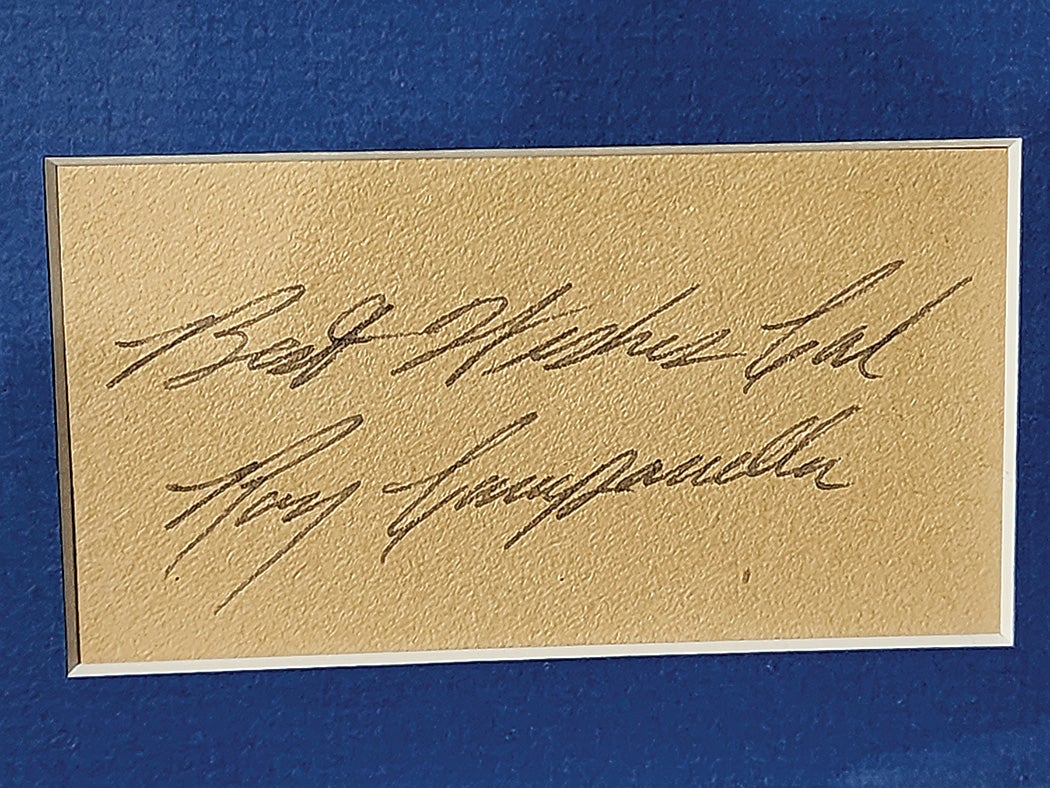 Best Wishes Cal
Roy Campanella